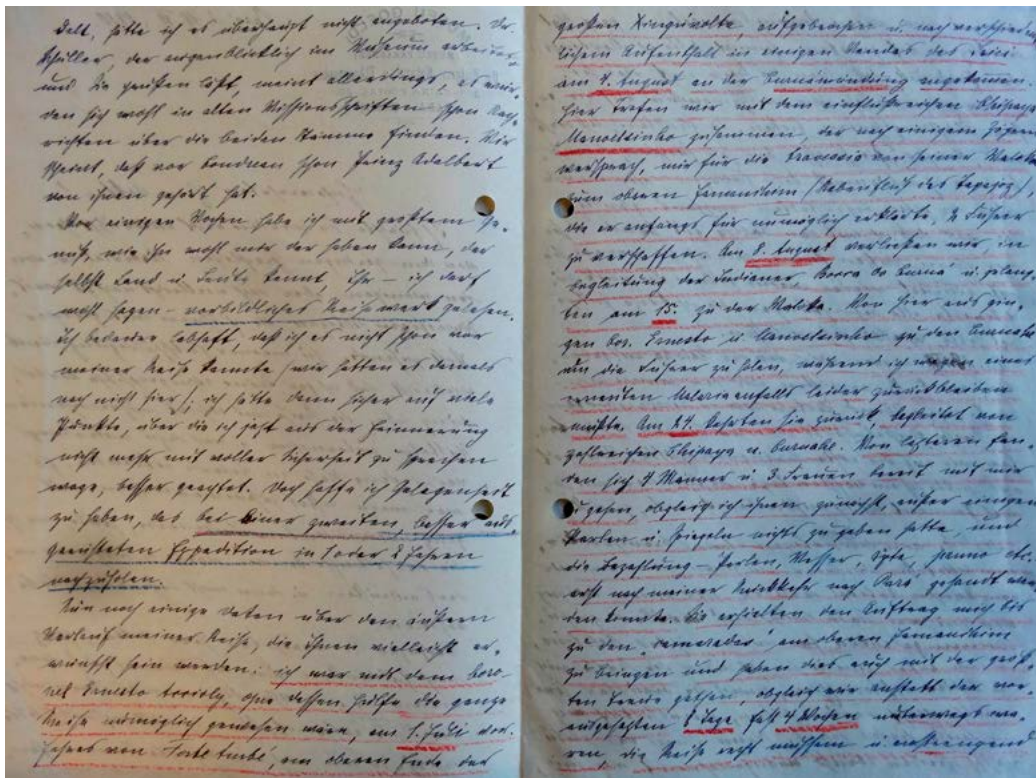 delt, hätte ich es überhaupt nicht angeboten. Dr.
Schuller, der augenblicklich im Museum arbeitet
und Sie grüßen läßt, meint allerdings, es wür-
den sich wohl in alten Missionsschriften schon Nach-
richten über die beiden Stämme finden. Mir
scheint, daß vor Coudreau schon Prinz Adalbert
von ihnen gehört hat.
Vor einigen Wochen habe ich mit größtem Ge-
nuß, wie ihn wohl nur der haben kann, der
selbst Land u. Leute kennt, Ihr – ich darf
wohl sagen – vorbildliches Reisewerk gelesen.
Ich bedaure lebhaft, daß ich es nicht schon vor
meiner Reise kannte (wir hatten es damals
noch nicht hier); ich hätte dann sicher auf viele
Punkte, über die ich jetzt aus der Erinnerung
nicht mehr mit voller Sicherheit zu sprechen
wage, besser geachtet. Doch hoffe ich Gelegenheit
zu haben, das bei einer zweiten, besser aus-
gerüsteten Expedition in 1 oder 2 Jahren
nachzuholen.
Nun noch einige Daten über den äußern
Verlauf meiner Reise, die Ihnen vielleicht er-
wünscht sein werden: ich war mit dem Coro-
nel Ernesto Accioly, ohne dessen Hilfe die ganze
Reise unmöglich gewesen wäre, am 1. Juli vor.
Jahres von Forte Ambé, am oberen Ende der
großen Xinguvolte, aufgebrochen u. nach verschied
lichem Aufenthalt in einigen des Iriri
am 4. August an der Curuámündung angekommen.
Hier trafen wir mit dem einflußreichen Chipaya
Manoelsinho zusammen, der nach einigem Zögern
versprach, mir für die Travessia von seiner Maloka
zum oberen Jamanchim (Nebenfluß des Tapajoz)
die er anfangs für unmöglich erklärte, 2 Führer
zu verschaffen. Am 8. August verließen wir, in
Begleitung der Indianer, Bocca do Curuá u. gelang-
ten am 15. zu der Maloka. Von hier aus gin-
gen Cor. Ernesto u. Manoelsinho zu den Curuahé
um die Führer zu holen, während ich wegen eines
erneuten Malariaanfalls leider zurückbleiben
mußte. Am 27. kehrten sie zurück, begleitet von
zahlreichen Chipaya u. Curuahé. Von letzteren fan-
den sich 4 Männer u. 3 Frauen bereit mit mir
zu gehen, obgleich ich ihnen zunächst, außer einigen
u. Spiegeln nichts zu geben hatte, und
die Bezahlung – Perlen, Messer, Äxte, panno etc.
erst nach meiner Rückkehr nach Pará gesandt wer-
den konnte. Sie erhielten den Auftrag mich bis
zu den am oberen Jamanchim
zu bringen und haben dies auch mit der größ-
ten Treue gethan, obgleich wir anstatt der vor-
ausgesetzten 8 Tage fast 4 Wochen unterwegs wa-
ren, die Reise recht mühsam u. anstrengend